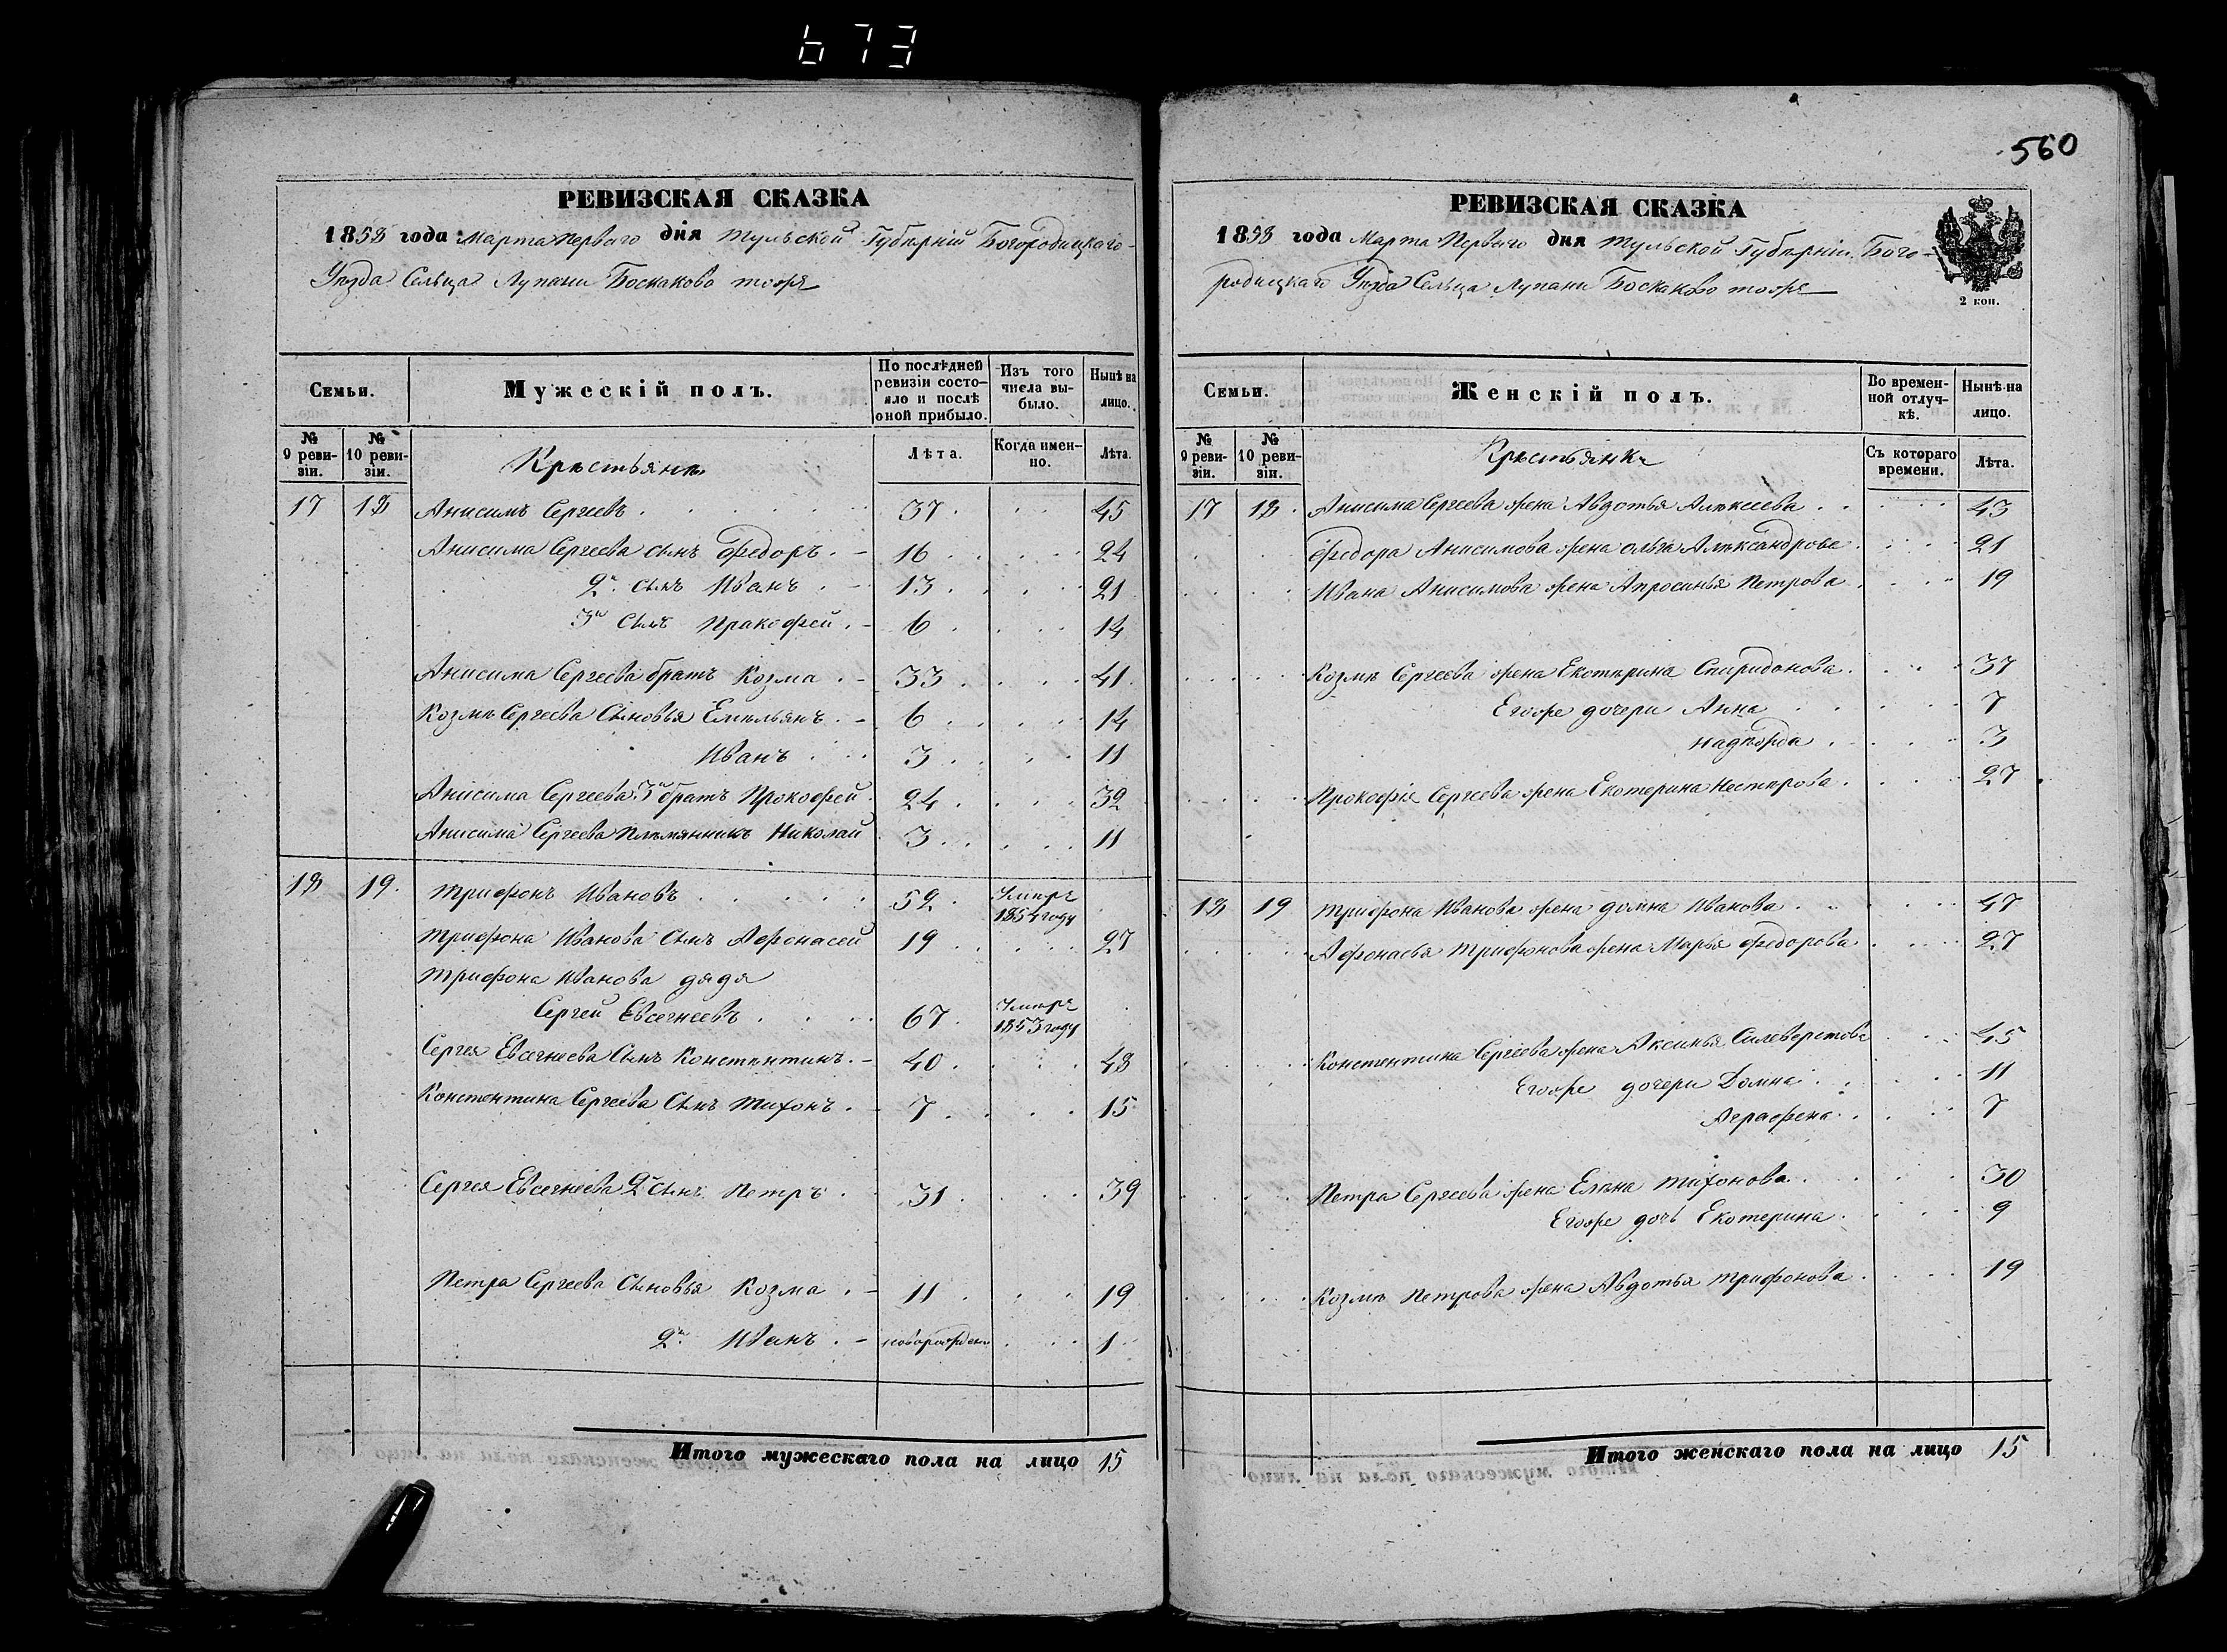 673
560
РЕВИЗСКАЯ СКАЗКА
1858 года Марта Перваго дня Тульской Губерніи Богородицкаго
Уезда Сельца Лупани Боскаково тожъ
Семьи.
Мужескій полъ.
По послѣдней ревизіи состо-
яло и послѣ
оной прибыло.
Изъ того
числа вы-
было.
Нынѣ на
лицо.
№
9 реви-
зіи.
№
10 реви-
зіи.
Крестьяне
Лѣта.
Когда имен-
но.
Лѣта.
17 18 Анисимъ Сергеевъ 37 45
Анисима Сергеева сынъ Федоръ 16 24
2й сынъ Иванъ 13 21
3й сынъ Пракофей 6 14
Анисима Сергеева братъ Козма 33 41
Козмы Сергеева Сыновья Емельянъ 6 14
Иванъ 3 11
Анисима Сергеева 3й братъ Прокофей 24 32
Анисима Сергеева Племянникъ Николай 3 11
18 19. Трифонъ Ивановъ 52 Умеръ 1854 году
Трифона Иванова Сынъ Афонасей 19 27
Трифона Иванова дядя
Сергей Евсегнеевъ 67 Умеръ 1853 году
Сергея Евсегнеева Сынъ Констентинъ 40 48
Констентина Сергеева Сынъ Тихонъ 7 15
Сергея Евсегнеева 2й сынъ Петръ 31 39
Петра Сергеева Сыновья Козма 11 19
2й Иванъ новорожден 1
Итого мужескаго пола на лицо 15
РЕВИЗСКАЯ СКАЗКА
1858 года Марта Перваго дня Тульской Губерніи Бого-
родицкаго Уезда Сельца Лупани Боскаково тожъ
2 коп.
Семьи.
Женскій полъ.
Во времен-
ной отлуч-
кѣ.
Нынѣ на
лицо.
№
9 реви-
зіи.
№
10 реви-
зіи.
Крестьянки
Съ котораго
времени.
Лѣта.
17 18 Анисима Сергеева жена Авдотья Алексеева 43
Федора Анисимова жена Ольга Александрова 21
Ивана Анисимова жена Апросинья Петрова 19
Козмы Сергеева жена Екатерина Спиридонова 37
Егоже дочери Анна 7
Надежда 3
Прокофія Сергеева жена Екатерина Нестерова 27
18 19 Трифона Иванова жена Домна Иванова 47
Афонасья Трифонова жена Марья Федорова 27
Констентина Сергеева жена Аксинья Силеверстова 45
Егоже дочери Домна 11
Аграфена 7
Петра Сергеева жена Елена Тихонова 30
Егоже дочь Екатерина 9
Козмы Петрова жена Авдотья Трифонова 19
Итого женскаго пола на лицо 15